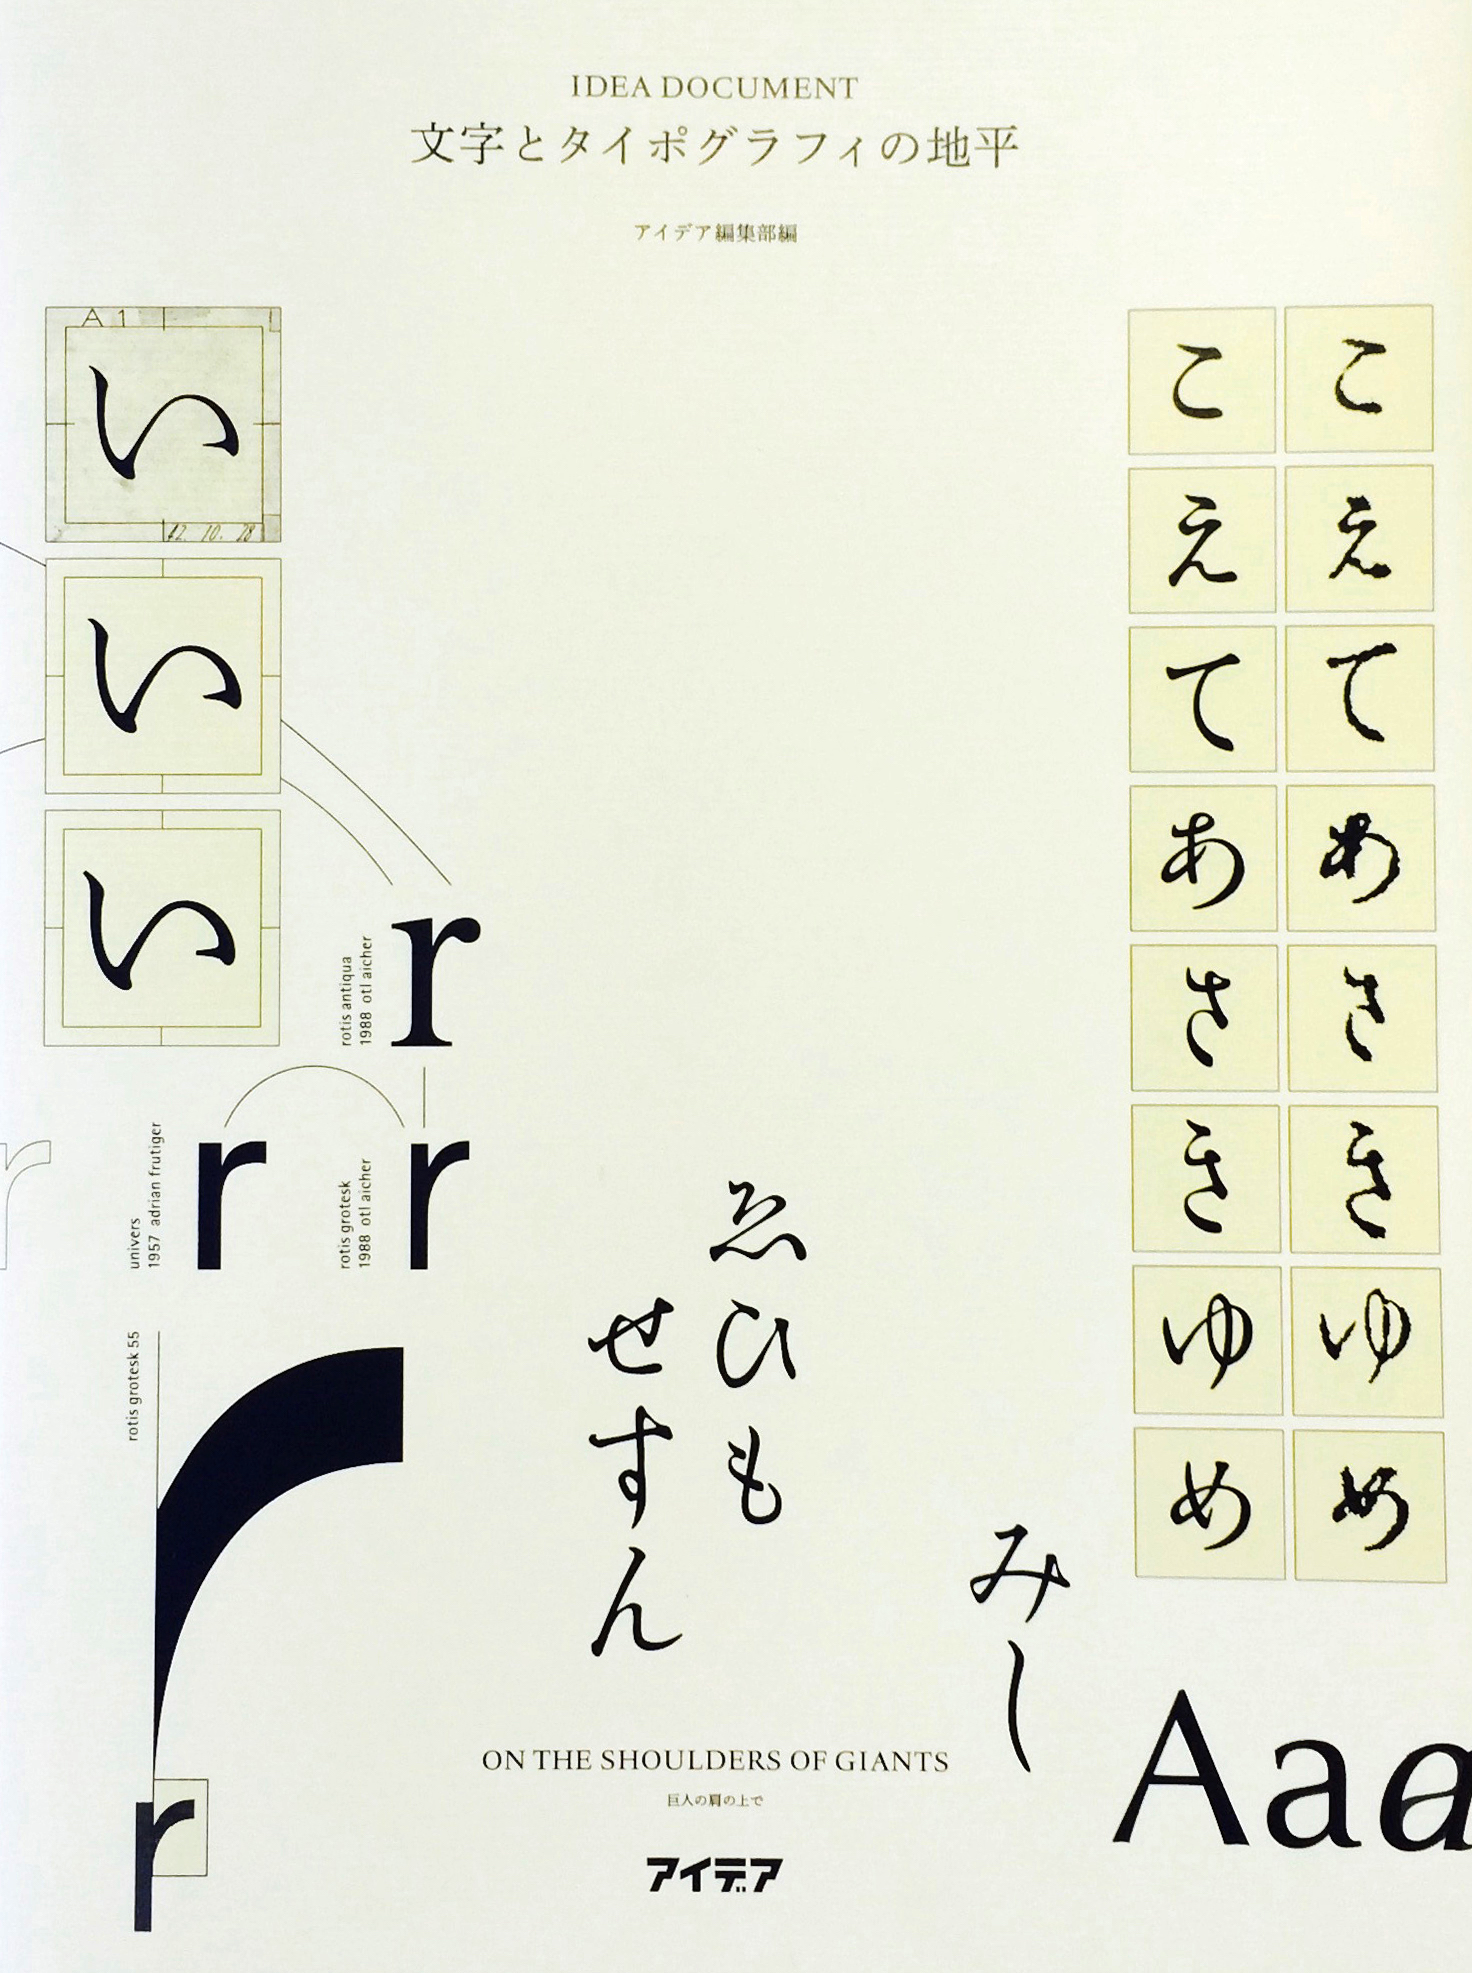 IDEA DOCUMENT
文字とタイポグラフィの地平
アイデア編集部編
A 1
い
42. 10. 28
い
い
こ こ
え え
て て
あ あ
さ さ
き き
ゆ ゆ
め め
rotis antiqua
1988 otl aicher
r
r
univers
1957 adrian frutiger
r
rotis grotesk
1988 otl aicher
r
rotis grotesk 55
r
ゑひも
せすん
みし
Aaa
ON THE SHOULDERS OF GIANTS
巨人の肩の上で
アイデア